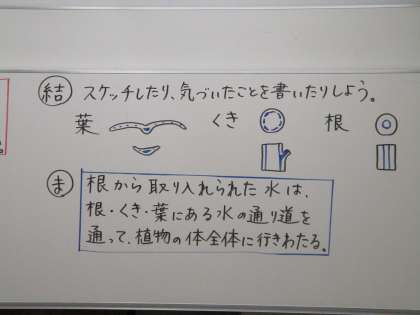 結 スケッチしたり、気づいたことを書いたりしよう。
葉 くき 根
ま 根から取り入れられた水は、
根・くき・葉にある水の通り道を
通って、植物の体全体に行きわたる。